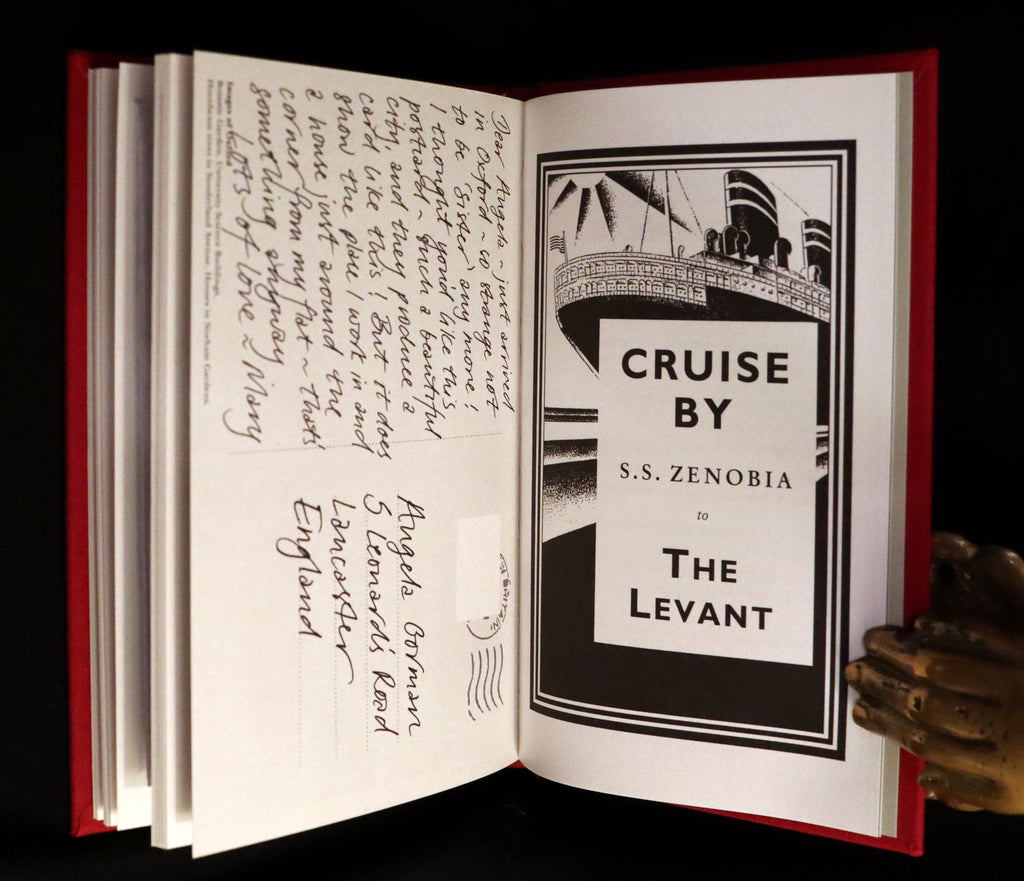 Dear Angela ~ just arrived
in Oxford ~ so strange not
to be 'Sister' any more!
I thought you'd like this
postcard ~ such a beautiful
city, and they produce a
card like this! But it does
show the place I work in and
a house just around the
corner from my flat ~ that's
something anyway
Lots of love ~ Mary
Images of
Botanic Garden, University Science Buildings,
Hornbeam trees in Sunderland Avenue, Houses in Norham Gardens.
BRITAIN
Angela Gorman
5 Leonard's Road
Lancaster
England
CRUISE
BY
S.S. ZENOBIA
to
THE
LEVANT